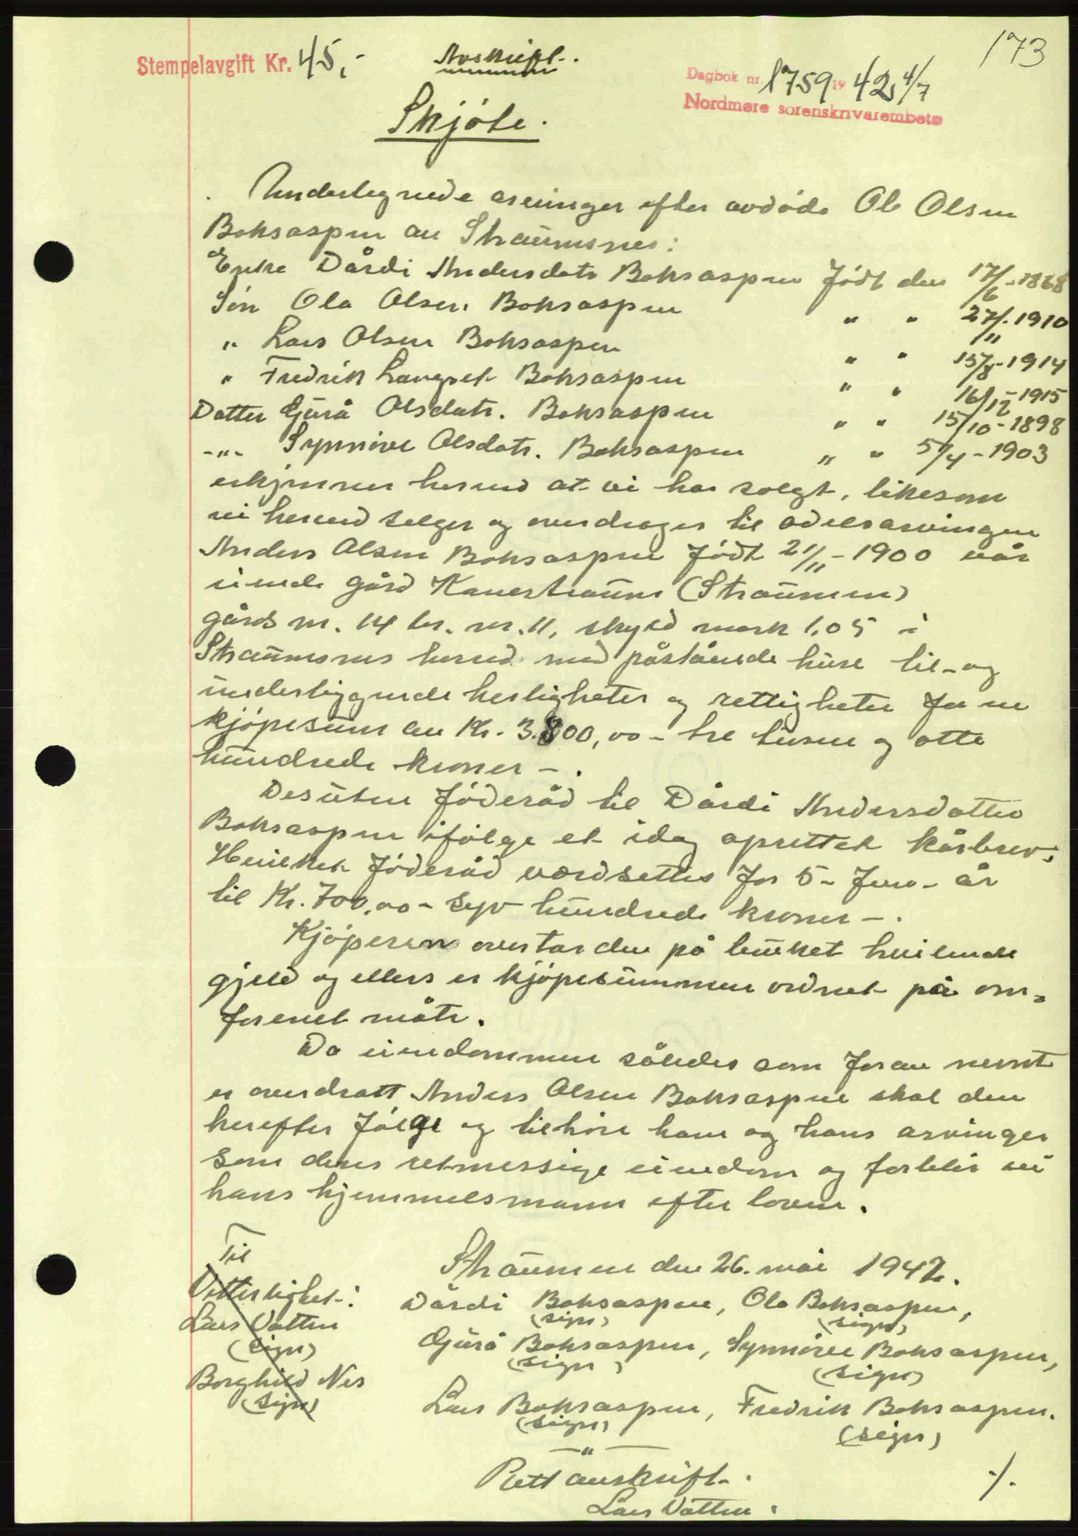 173
Stempelavgift Kr. 45,-
Avskrift.
Dagbok nr. 1759 19 42 4/7
Nordmøre sorenskrivarembete
Skjøte.
Undertegnede arvinger efter avdøde Ole Olsen
Boksaspen av Straumsnes:
Enke Dårdi Andersdatr Boksaspen født den 17/6-1868
Søn Ola Olsen Boksaspen " " 27/11.1910
" Lars Olsen Boksaspen " " 15/8-1914
" Fredrik Langset Boksaspen " " 16/12-1915
Datter Gjurå Olsdatr. Boksaspen " " 15/10-1898
-"- Synnøve Olsdatr. Boksaspen " " 5/4-1903
erkjenner herved at vi har solgt, likesom
vi herved selger og overdrager til odelsarvingen
Anders Olsen Boksaspen født 2/11-1900 vår
eiende gård Kanestraum (Straumen)
gårds nr. 14 br. nr. 11, skyld mark 1.05 i
Straumsnes herred med påstående huse til- og
underliggende herligheter og rettigheter for en
kjøpesum av Kr. 3.800,00 - tre tusen og otte
hundrede kroner -.
Desuten føderåd til Dårdi Andersdatter
Boksaspen ifølge et idag oprettet kårbrev.
Hvilket føderåd verdsettes for 5- fem- år
til Kr. 700,00 - syv hundrede kroner -.
Kjøperen overtar den på bruket hvilende
gjeld og ellers er kjøpesummen ordnet på om=
forenet måte.
Da eiendommen således som foran nevnt
er overdratt Anders Olsen Boksaspen skal den
herefter følge og tilhøre ham og hans arvinger
som deres retmessige eiendom og forblir vi
hans hjemmelsmann efter loven.
Straumen den 26. mai 1942.
Til
Vitterlighet:
Lars Vatten
(sign)
Borghild Nes
(sign)
Dårdi Boksaspen, Ola Boksaspen,
(sign) (sign)
Gjurå Boksaspen, Synnøve Boksaspen,
(sign) (sign)
Lars Boksaspen, Fredrik Boksaspen.
(sign) (sign)
— " —
Rett avskrift.
Lars Vatten.
./.